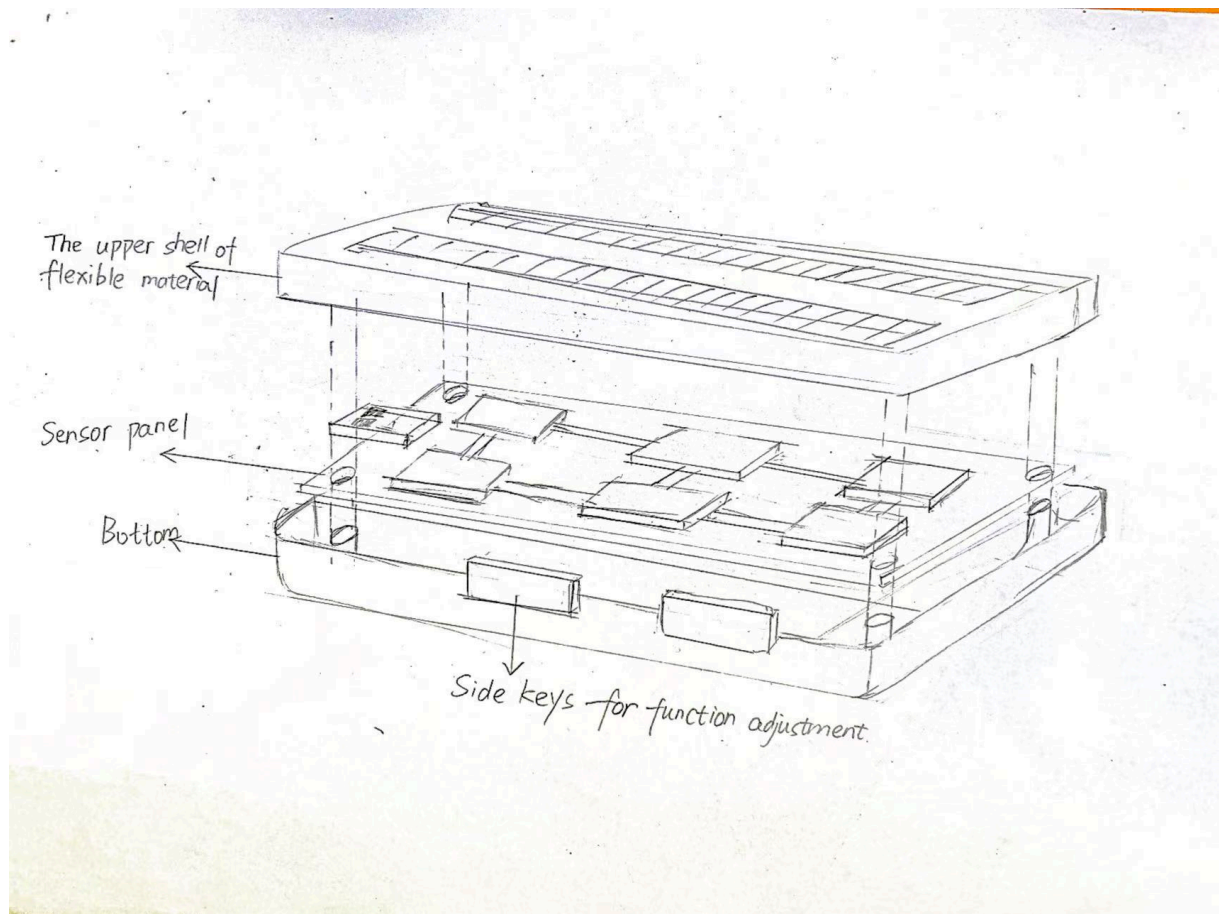 The upper shell of
flexible material
Sensor panel
Bottom
Side keys for function adjustment.